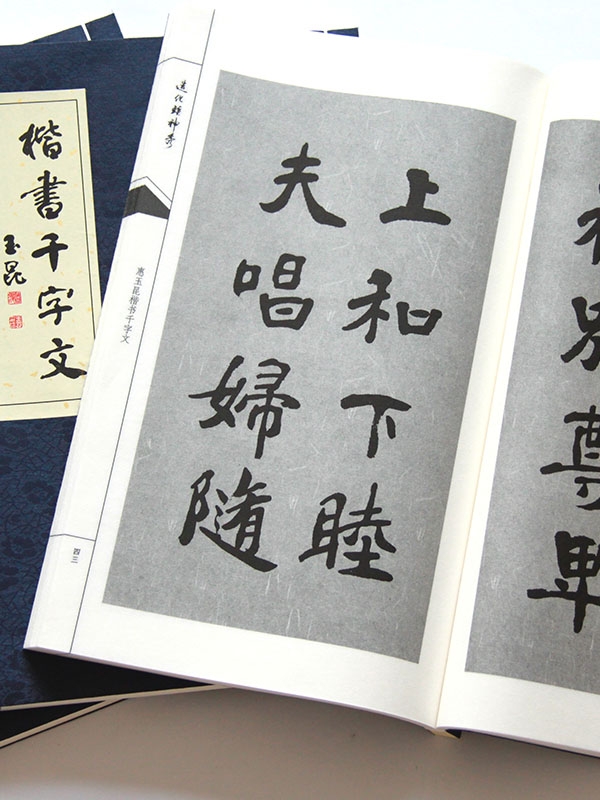 楷書千字文
玉昆
造化鍾神秀
惠玉昆楷书千字文
四三
別尊卑
上和下睦
夫唱婦隨